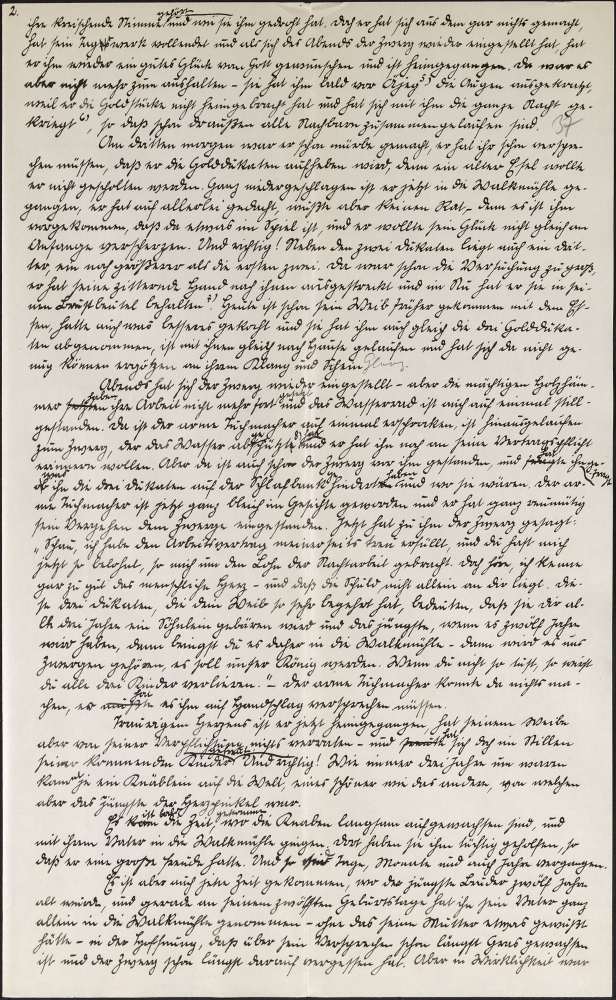 2.
ihre kreischende Stimme gehört und wie sie ihm gedroht hat. Doch er hat sich aus dem gar nichts gemacht,
hat sein Tagwerk vollendet und als sich des Abends der Zwerg wieder eingestellt hat, hat
er ihm wieder ein gutes Glück von Gott gewunschen und ist heimgegangen. Da war es
aber nicht mehr zum aushalten – sie hat ihm bald vor die Augen ausgekratzt,
weil er die Goldstücke nicht heimgebracht hat und hat sich mit ihm die ganze Nacht ge-
kriegt 6), so daß schon draußen alle Nachbarn zusammengelaufen sind. 37
Am dritten morgen war er schon mürbe gemacht, er hat ihr schon verspre-
chen müssen, daß er die Golddukaten aufheben wird, denn ein alter Esel wollte
er nicht gescholten werden. Ganz niedergeschlagen ist er jetzt in die Walkmühle ge-
gangen, er hat auf allerlei gedacht, wußte aber keinen Rat, denn es ist ihm
vorgekommen, daß da etwas im Spiel ist, und er wollte sein Glück nicht gleich am
Anfange verscherzen. Und richtig! Neben den zwei Dukaten liegt auch ein drit-
ter, ein noch größerer als die ersten zwei. Da war schon die Versuchung zu groß,
er hat seine zitternde Hand nach ihnen ausgestreckt und im Nu hat er sie in sei-
nen Brustbeutel behalten 7). Heute ist schon sein Weib früher gekommen mit dem Es-
sen, hatte auch was besseres gekocht und sie hat ihm auch gleich die drei Golddüka-
ten abgenommen, ist mit ihnen gleich nach Hause gelaufen und hat sich da nicht ge-
nug können ergötzen an ihrem Klang und Schein Glanz.
Abends hat sich der Zwerg wieder eingestellt – aber die mächtigen Holzhäm-
mer haben ihre Arbeit nicht mehr fortgesetzt und das Wasserrad ist auch auf einmal still-
gestanden. Da ist der arme Tuchmacher auf einmal erschrocken, ist hinausgelaufen
zum Zwerg, der das Wasser und er hat ihn noch an seine Vertragspflicht
erinnern wollen. Aber da ist auch schon der Zwerg vor ihm gestanden, und hat ihn gefragt
ob ihn die drei Dukaten auf der Schlafbank haben und wo sie wären. Der ar-
me Tuchmacher ist jetzt ganz bleich im Gesichte geworden und er hat ganz reumütig
sein Vergehen dem Zwerge eingestanden. Jetzt hat zu ihm der Zwerg gesagt:
„Schau, ich habe den Arbeitsvertrag meinerseits treu erfüllt, und du hast mich
jetzt so belohnt, so mich um den Lohn der Nachtarbeit gebracht. Doch höre, ich kenne
gar zu gut das menschliche Herz – und daß die Schuld nicht allein an dir liegt. Die-
se drei Dukaten, die dein Weib so sehr begehrt hat, bedeuten, daß sie dir al-
le drei Jahre ein Söhnlein gebären wird und das jüngste, wenn es zwölf Jahre
wird haben, dann bringst du es daher in die Walkmühle – dann wird es uns
Zwergen gehören, es soll unser König werden. Wenn du nicht so tust, so weist
du alle drei Kinder verlieren." – Der arme Tuchmacher konnte da nichts ma-
chen, er hat es ihm auf Handschlag versprechen müssen.
Traurigen Herzens ist er jetzt heimgegangen, hat seinem Weibe
aber von seiner Verpflichtung nichts verraten – und hat sich doch im Stillen
seiner kommenden Kinder gefreut. Und richtig! Wie immer drei Jahre um waren
kam je ein Knäblein auf die Welt, eines schöner wie das andere, von welchen
aber das Jüngste der Herzpünkel war.
Es ist bald die Zeit gekommen, wo die Knaben langsam aufgewachsen sind, und
mit ihrem Vater in die Walkmühle gingen. Dort haben sie ihm tüchtig geholfen, so
daß er eine große Freude hatte. Und so sind Tage, Monate und auch Jahre vergangen.
Es ist aber auch jene Zeit gekommen, wo der jüngste Bruder zwölf Jahre
alt wurde, und gerade an seinem zwölften Geburtstage hat ihn sein Vater ganz
allein in die Walkmühle genommen – ohne das seine Mutter etwas gewußt
hätte – in der Hoffnung, daß über sein Versprechen schon längst Gras gewachsen
ist und der Zwerg schon längst darauf vergessen hat. Aber in Wirklichkeit war